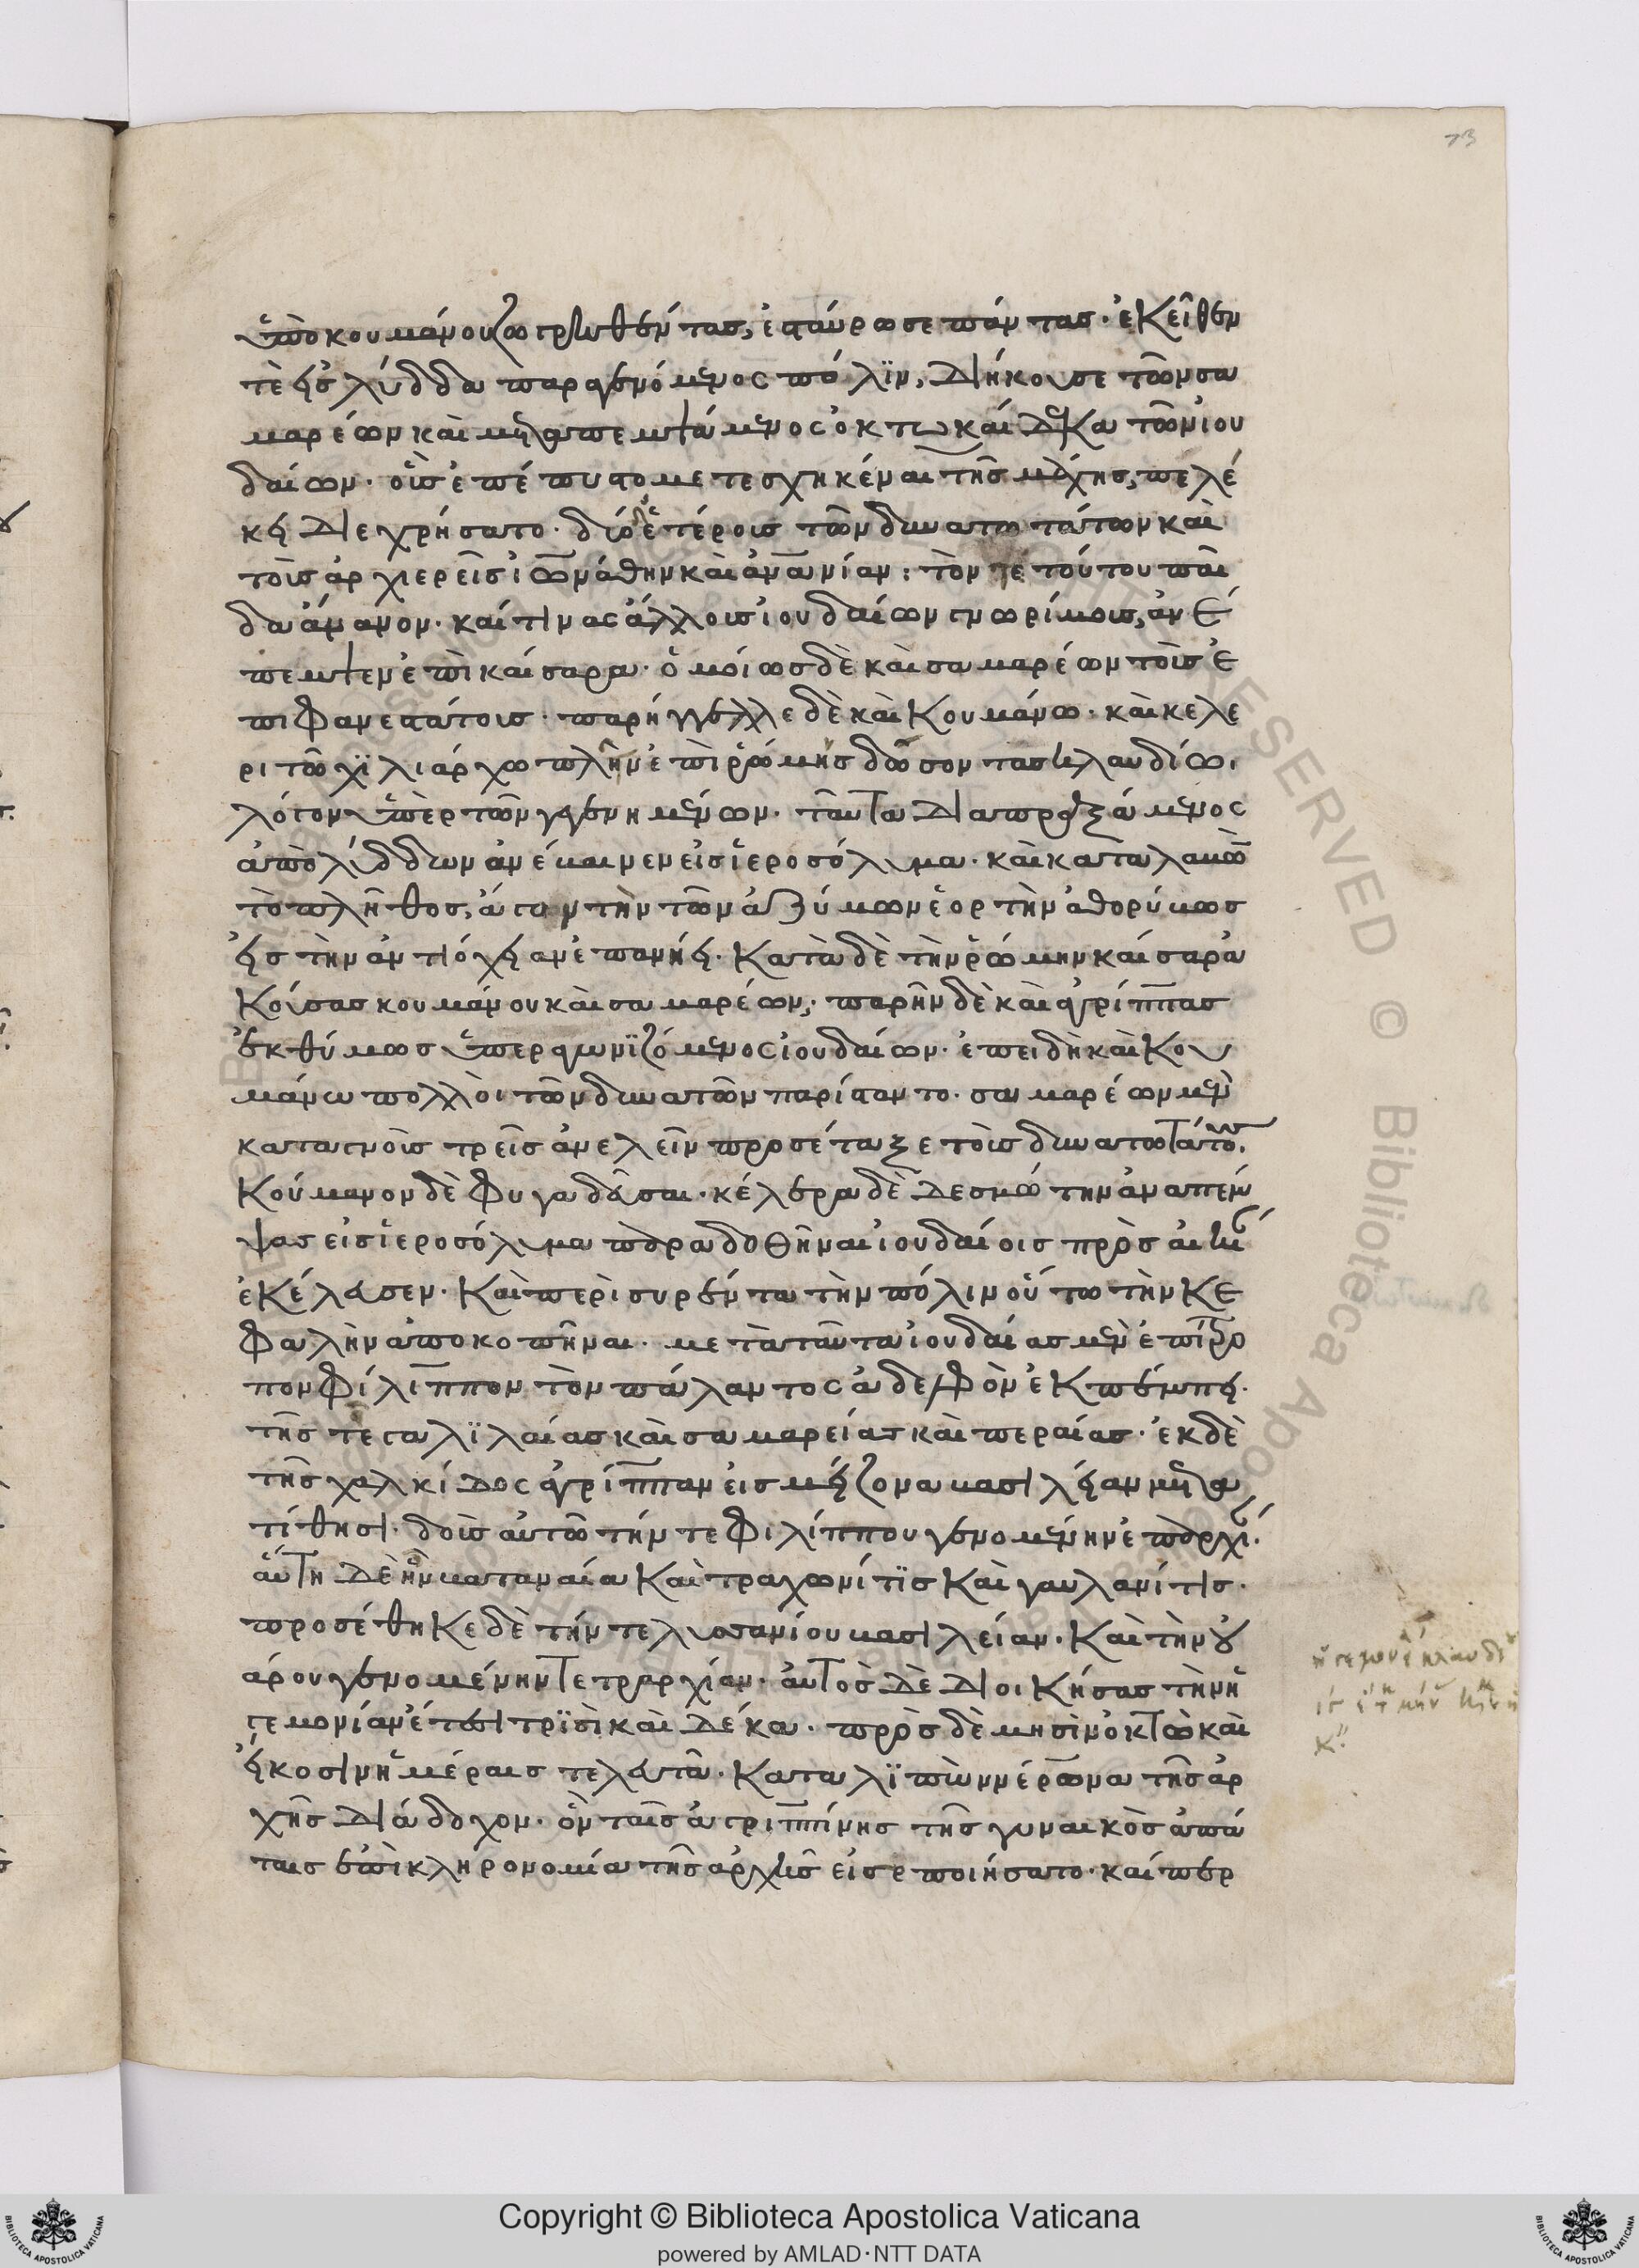 73
ὑπὸ κουμάνου ζωγρηθέντας, ἐσταύρωσε πάντας· ἐκεῖθεν
τὲ εἰς λύδδα παραγενόμενος πόλϊν, διήκουσε τῶν σα
μαρέων καὶ μεταπεμψάμενος ὀκτωκαίδεκα τῶν ἰου
δαίων· οὓς ἐπέπυστο μετεσχηκέναι τῆς μάχης, πελέ
κει διεχρήσατο· δύο ἑτέρους τῶν δυνατωτάτων καὶ
τοὺς ἀρχιερεῖς ἰωνάθην καὶ ἀνανίαν· τόν τε τούτου παῖ
δα ἄνανον· καί τινας ἄλλους ἰουδαίων γνωρίμους, ἀνέ
πεμψεν ἐπὶ καίσαρα· ὁμοίως δὲ καὶ σαμαρέων τοὺς ἐ
πιφανεστάτους· παρήγγελλε δὲ καὶ κουμάνω· καὶ κελε
ρι τῶ χϊλιάρχω πλεῖν ἐπὶ ῥώμης δώσοντας κλαυδίω·
λόγον ὑπὲρ τῶν γεγενημένων· ταῦτα διαπραξάμενος
ἀπὸ λύδδων ἀνέβαινεν εἰς ἱεροσόλυμα· καὶ καταλαβὼν
τὸ πλῆθος, ἄγον τὴν τῶν ἀζύμων ἑορτὴν ἀθορύβως
εἰς τὴν ἀντιόχειαν ἐπανήει. κατὰ δὲ τὴν ῥώμην καίσαρ ἀ
κούσας κουμάνου καὶ σαμαρέων, παρῆν δὲ καὶ ἀγρίππας
ἐκθύμως ὑπεραγωνϊζόμενος ἰουδαίων· ἐπειδὴ καὶ κου
μάνω πολλοὶ τῶν δυνατῶν παρίσταντο· σαμαρέων μὲν
καταγνοὺς τρεῖς ἀνελεῖν προσέταξε τοὺς δυνατωτάτους·
κούμανον δὲ φυγαδεῦσαι· κέλερα δὲ δεσμώτην ἀναπέμ
ψας εἰς ἱεροσόλυμα παραδοθῆναι ἰουδαίοις πρὸς αἰκίαν
ἐκέλευσεν· καὶ περισυρέντα τὴν πόλιν οὕτω τὴν κε
φαλὴν ἀποκοπῆναι· μετὰ ταῦτα ἰουδαίας μὲν ἐπίτρο
πον φίλιππον τὸν πάλαντος ἀδελφὸν ἐκπέμπει·
τῆς τε γαλϊλαίας καὶ σαμαρείας καὶ περαίας· ἐκ δὲ
τῆς χαλκίδος ἀγρίππαν εἰς μείζονα βασιλείαν μετα
τίθησι· δοὺς αὐτῶ τήν τε φιλίππου γενομένην ἐπαρχίαν·
αὕτη δὲ ἦν βαταναία καὶ τραχωνίτϊς καὶ γαυλανίτις·
προσέθηκε δὲ τήν τε λυσανίου βασιλείαν· καὶ τὴν οὐ
άρου γενομένην τετραρχίαν· αὐτὸς δὲ διοικήσας τὴν ἡ
γεμονίαν ἔτεσι τρϊσὶ καὶ δέκα· πρὸς δὲ μησὶν ὀκτὼ καὶ
εἴκοσιν ἡμέραις τελευτᾶ· καταλϊπὼν νέρωνα τῆς ἀρ
χῆς διάδοχον· ὃν ταῖς ἀγριππίνης τῆς γυναικὸς ἀπά
ταις ἐπὶ κληρονομία τῆς ἀρχῆς εἰσεποιήσατο· καίπερ
Copyright © Biblioteca Apostolica Vaticana
powered by AMLAD·NTT DATA